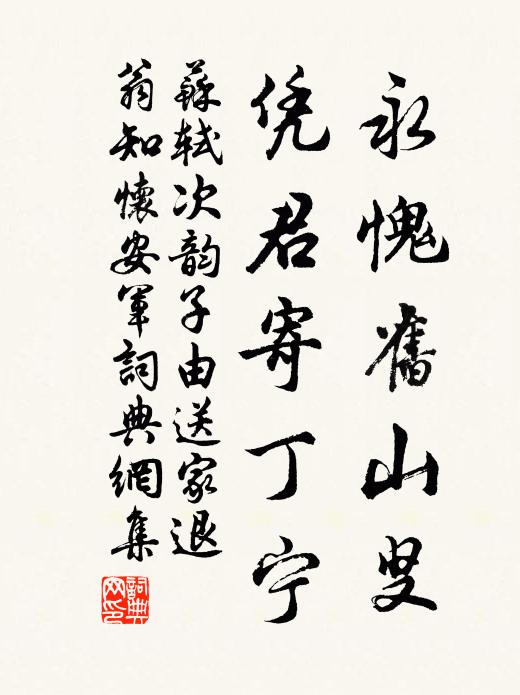 永愧舊山叟
凭君寄丁宁
蘇軾次韵子由送家退
翁知懷安軍詞典網集
詞典
网印